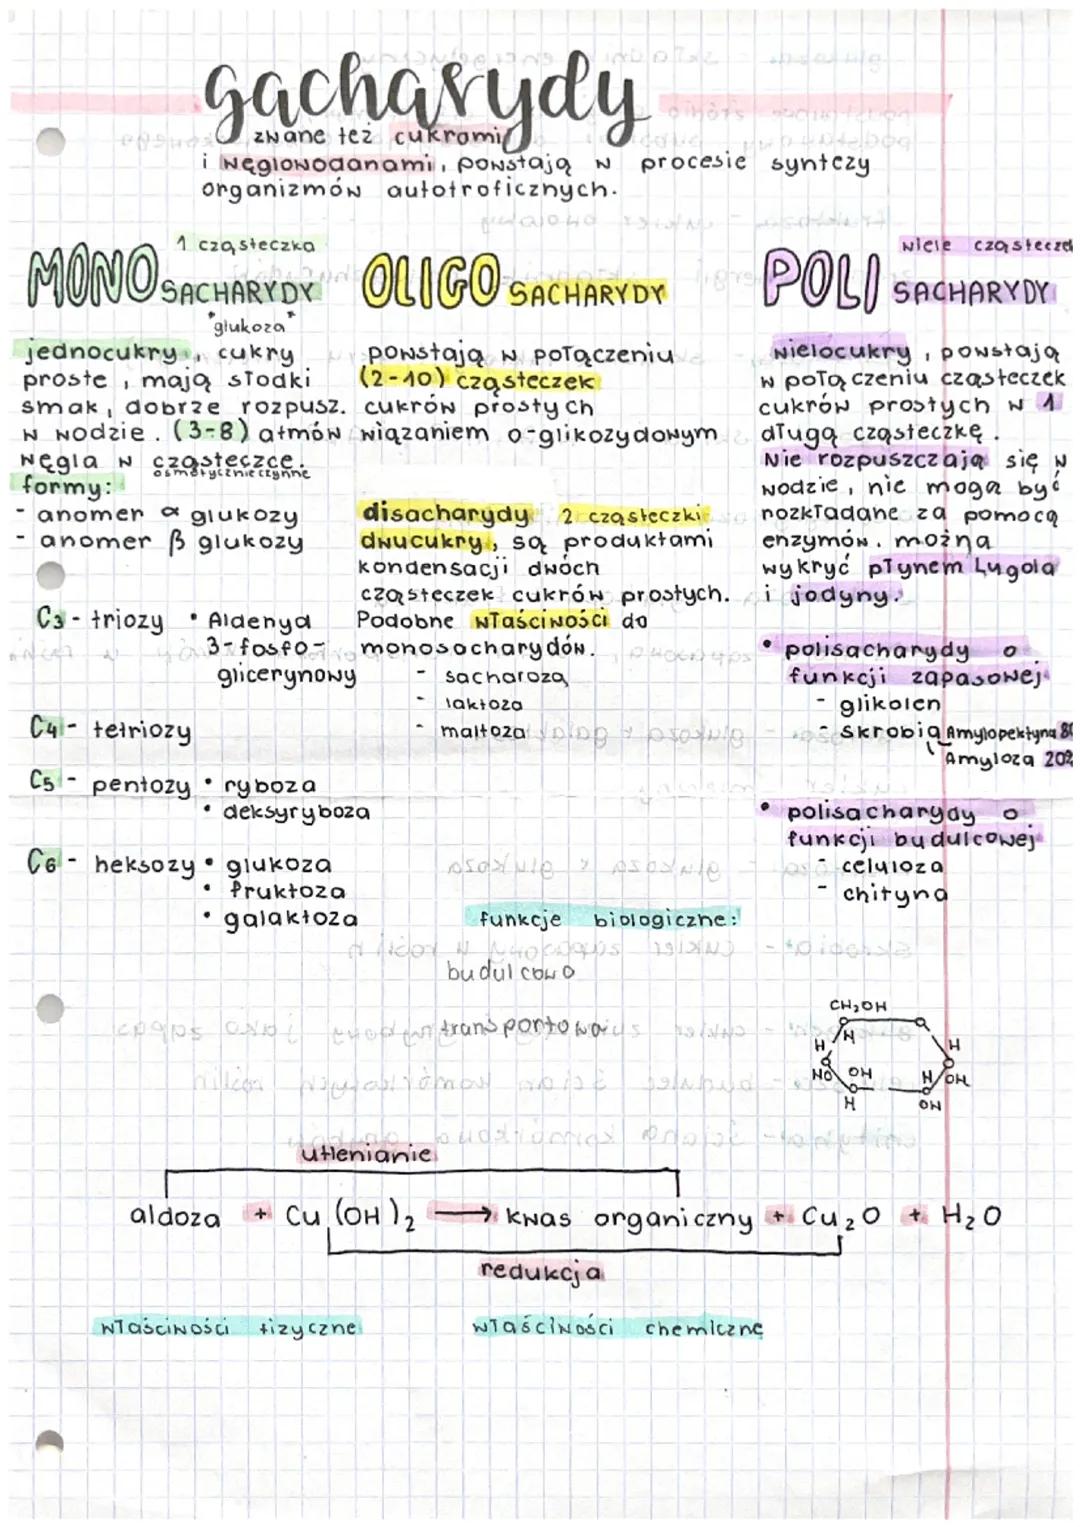 sacharydy
znane też cukrami
i węglowodanami, powstają w procesie syntezy
organizmów autotroficznych.
MONO SACHARYDY
1 cząsteczka
"glukoza"
jednocukry, cukry
proste, mają słodki
smak, dobrze rozpusz.
w wodzie. (3-8) atmów
węgla w cząsteczce.
osmotycznie czynne
formy:
- anomer α glukozy
- anomer β glukozy
C3 - triozy • Aldehyd
3-fosfo-
glicerynowy
C4 - tetriozy
C5 - pentozy • ryboza
• deksyryboza
C6 - heksozy • glukoza
• fruktoza
• galaktoza
OLIGO SACHARYDY
powstają w połączeniu
(2-10) cząsteczek
cukrów prostych
wiązaniem o-glikozydowym
disacharydy 2 cząsteczki
dwucukry, są produktami
kondensacji dwóch
cząsteczek cukrów prostych.
Podobne właściwości do
monosacharydów.
- sacharoza
- laktoza
- maltoza
POLI SACHARYDY
wiele cząsteczek
wielocukry, powstają
w połączeniu cząsteczek
cukrów prostych w 1
długą cząsteczkę.
Nie rozpuszczają się w
wodzie, nie mogą być
rozkładane za pomocą
enzymów. można
wykryć płynem Lugola
i jodyny.
• polisacharydy o
funkcji zapasowej
- glikolen
- skrobia Amylopektyna 80
Amyloza 20%
• polisacharydy o
funkcji budulcowej
- celuloza
- chityna
funkcje biologiczne:
budulcowo
transportowa
CH2OH
H H H
HO OH H OH
H OH
utlenianie
aldoza + Cu(OH)2 → kwas organiczny + Cu2O + H2O
redukcja
właściwości fizyczne
właściwości chemiczne